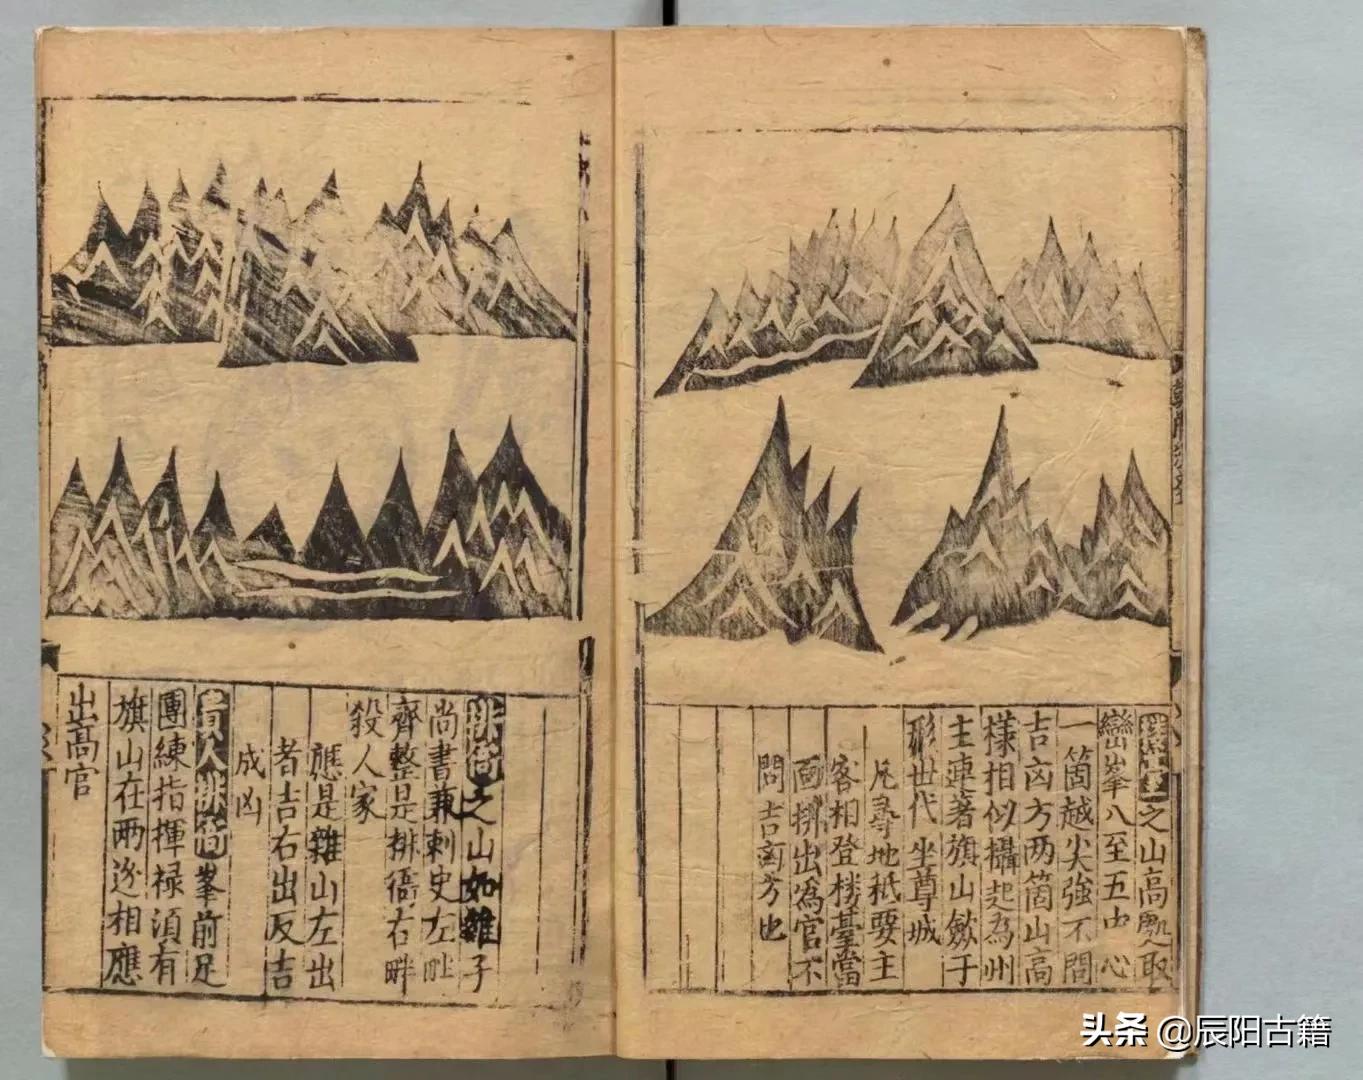 之山高處取
巒峯八至五中心
一箇越尖強不問
吉凶方两箇山高
様相似攝起為州
主連著旗山歛于
形世代坐尊城
凡尋地秪要主
客相登楼臺當
面排出為官不
問吉凶方也
排衙之山如雞子
尚書兼刺史左畔
齊整是排衙右畔
殺人家
應是雜山左出
者吉右出反吉
成凶
貴人排衙峯前足
團練指揮禄須有
旗山在两邊相應
出高官
头条 @辰阳古籍